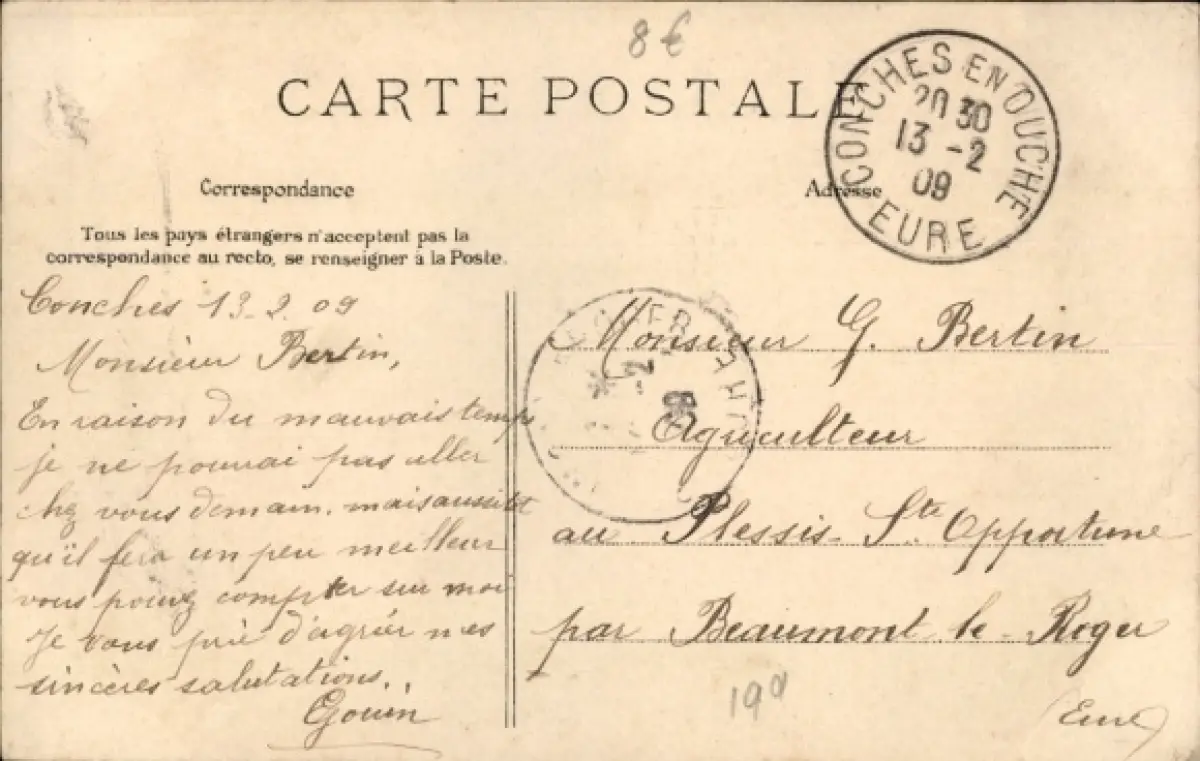 8€
CARTE POSTALE
CONCHES EN OUCHE
20 30
13 -2
09
EURE
Correspondance
Adresse
Tous les pays étrangers n'acceptent pas la
correspondance au recto, se renseigner à la Poste.
Conches 13.2.09
Monsieur Bertin,
En raison du mauvais temps
je ne pourrai pas aller
chez vous demain. mais aussitot
qu'il fera un peu meilleur
vous pouvez compter sur moi
Je vous prie d'agréer mes
sincères salutations.
Gouin
Monsieur G. Bertin
Agriculteur
au Plessis Ste Opportune
par Beaumont le Roger
(Eure)